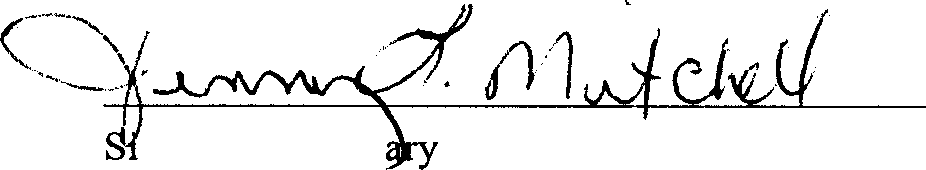 Jenny L. Mitchell
Si ary